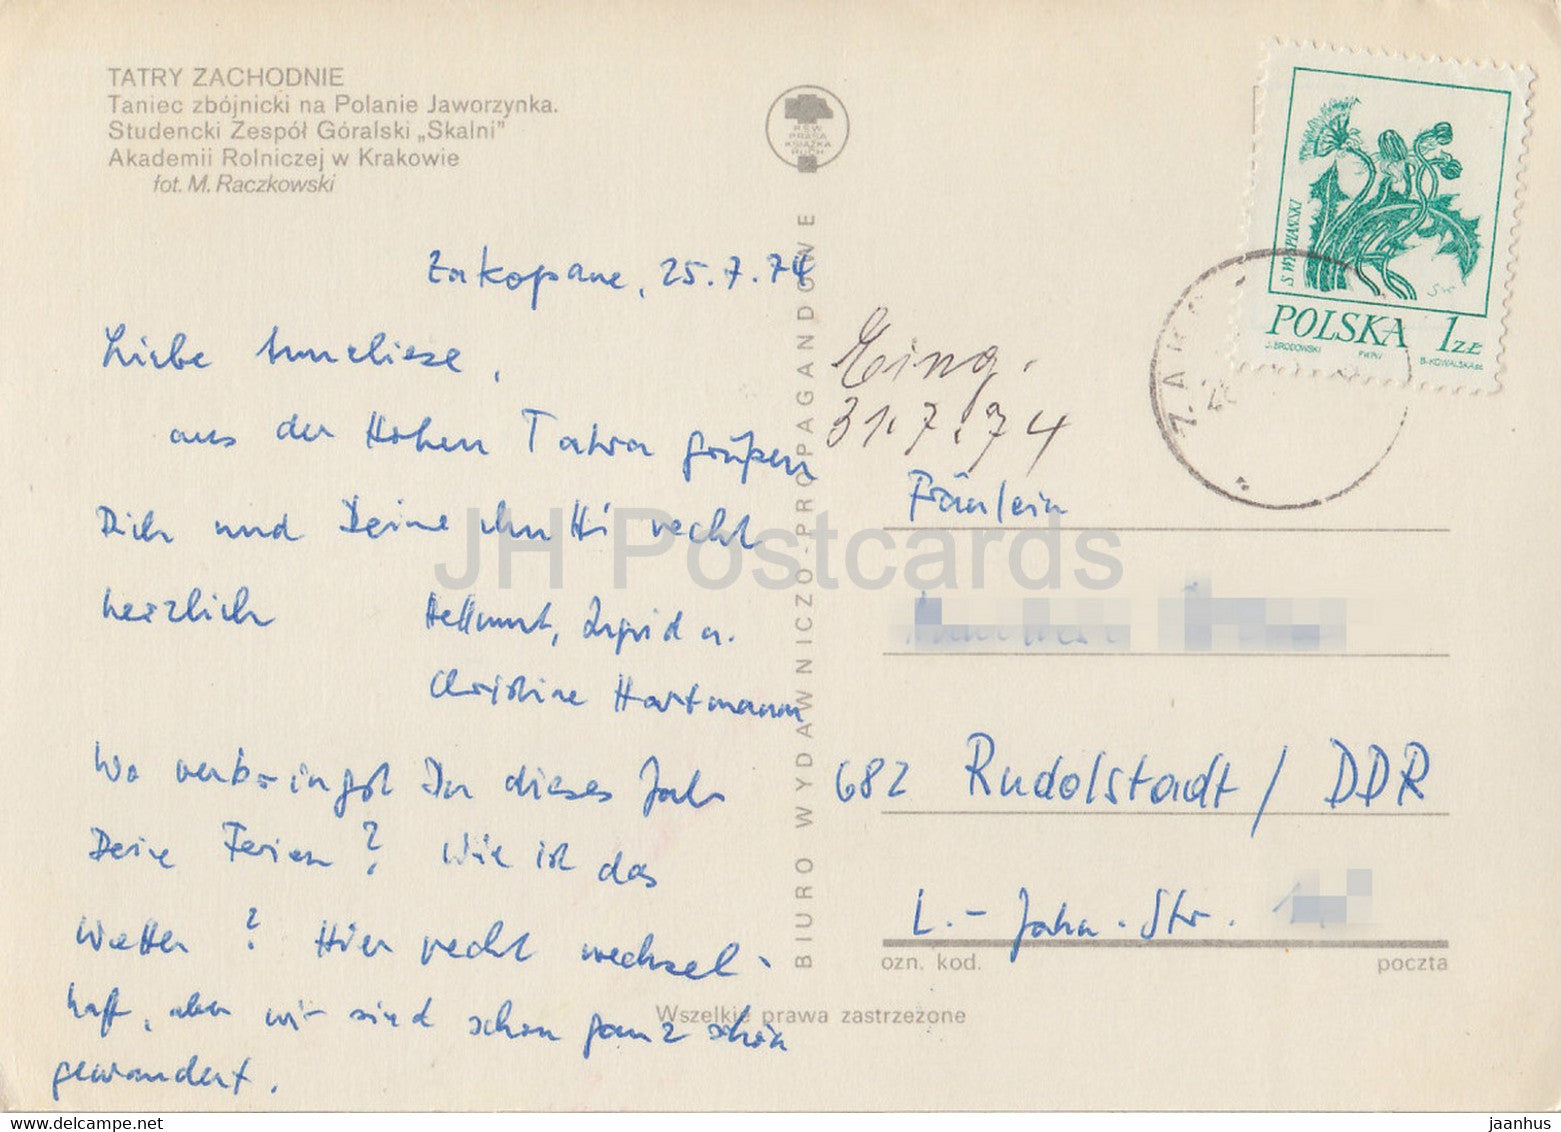 TATRY ZACHODNIE
Taniec zbójnicki na Polanie Jaworzynka.
Studencki Zespół Góralski „Skalni”
Akademii Rolniczej w Krakowie
fot. M. Raczkowski
RSW
PRASA
KSIĄŻKA
RUCH
Zakopane, 25.7.74
Liebe Anneliese,
aus der Hohen Tatra grüßen
Dich und Deine Mutti recht
herzlich Hellmut, Ingrid u.
Christine Hartmann
Wo verbringst Du dieses Jahr
Deine Ferien? Wie ist das
Wetter? Hier recht wechsel-
haft, aber wir sind schon ganz schön
gewandert.
BIURO WYDAWNICZO-PROPAGANDOWE
Eing.
31.7.74
S. WYSPIAŃSKI
SW
POLSKA 1 ZŁ
J. BRODOWSKI PWPW B. KOWALSKA sc.
Fräulein
682 Rudolstadt / DDR
L.-Jahn-Str.
ozn. kod. poczta
Wszelkie prawa zastrzeżone
JH Postcards
www.delcampe.net
jaanhus